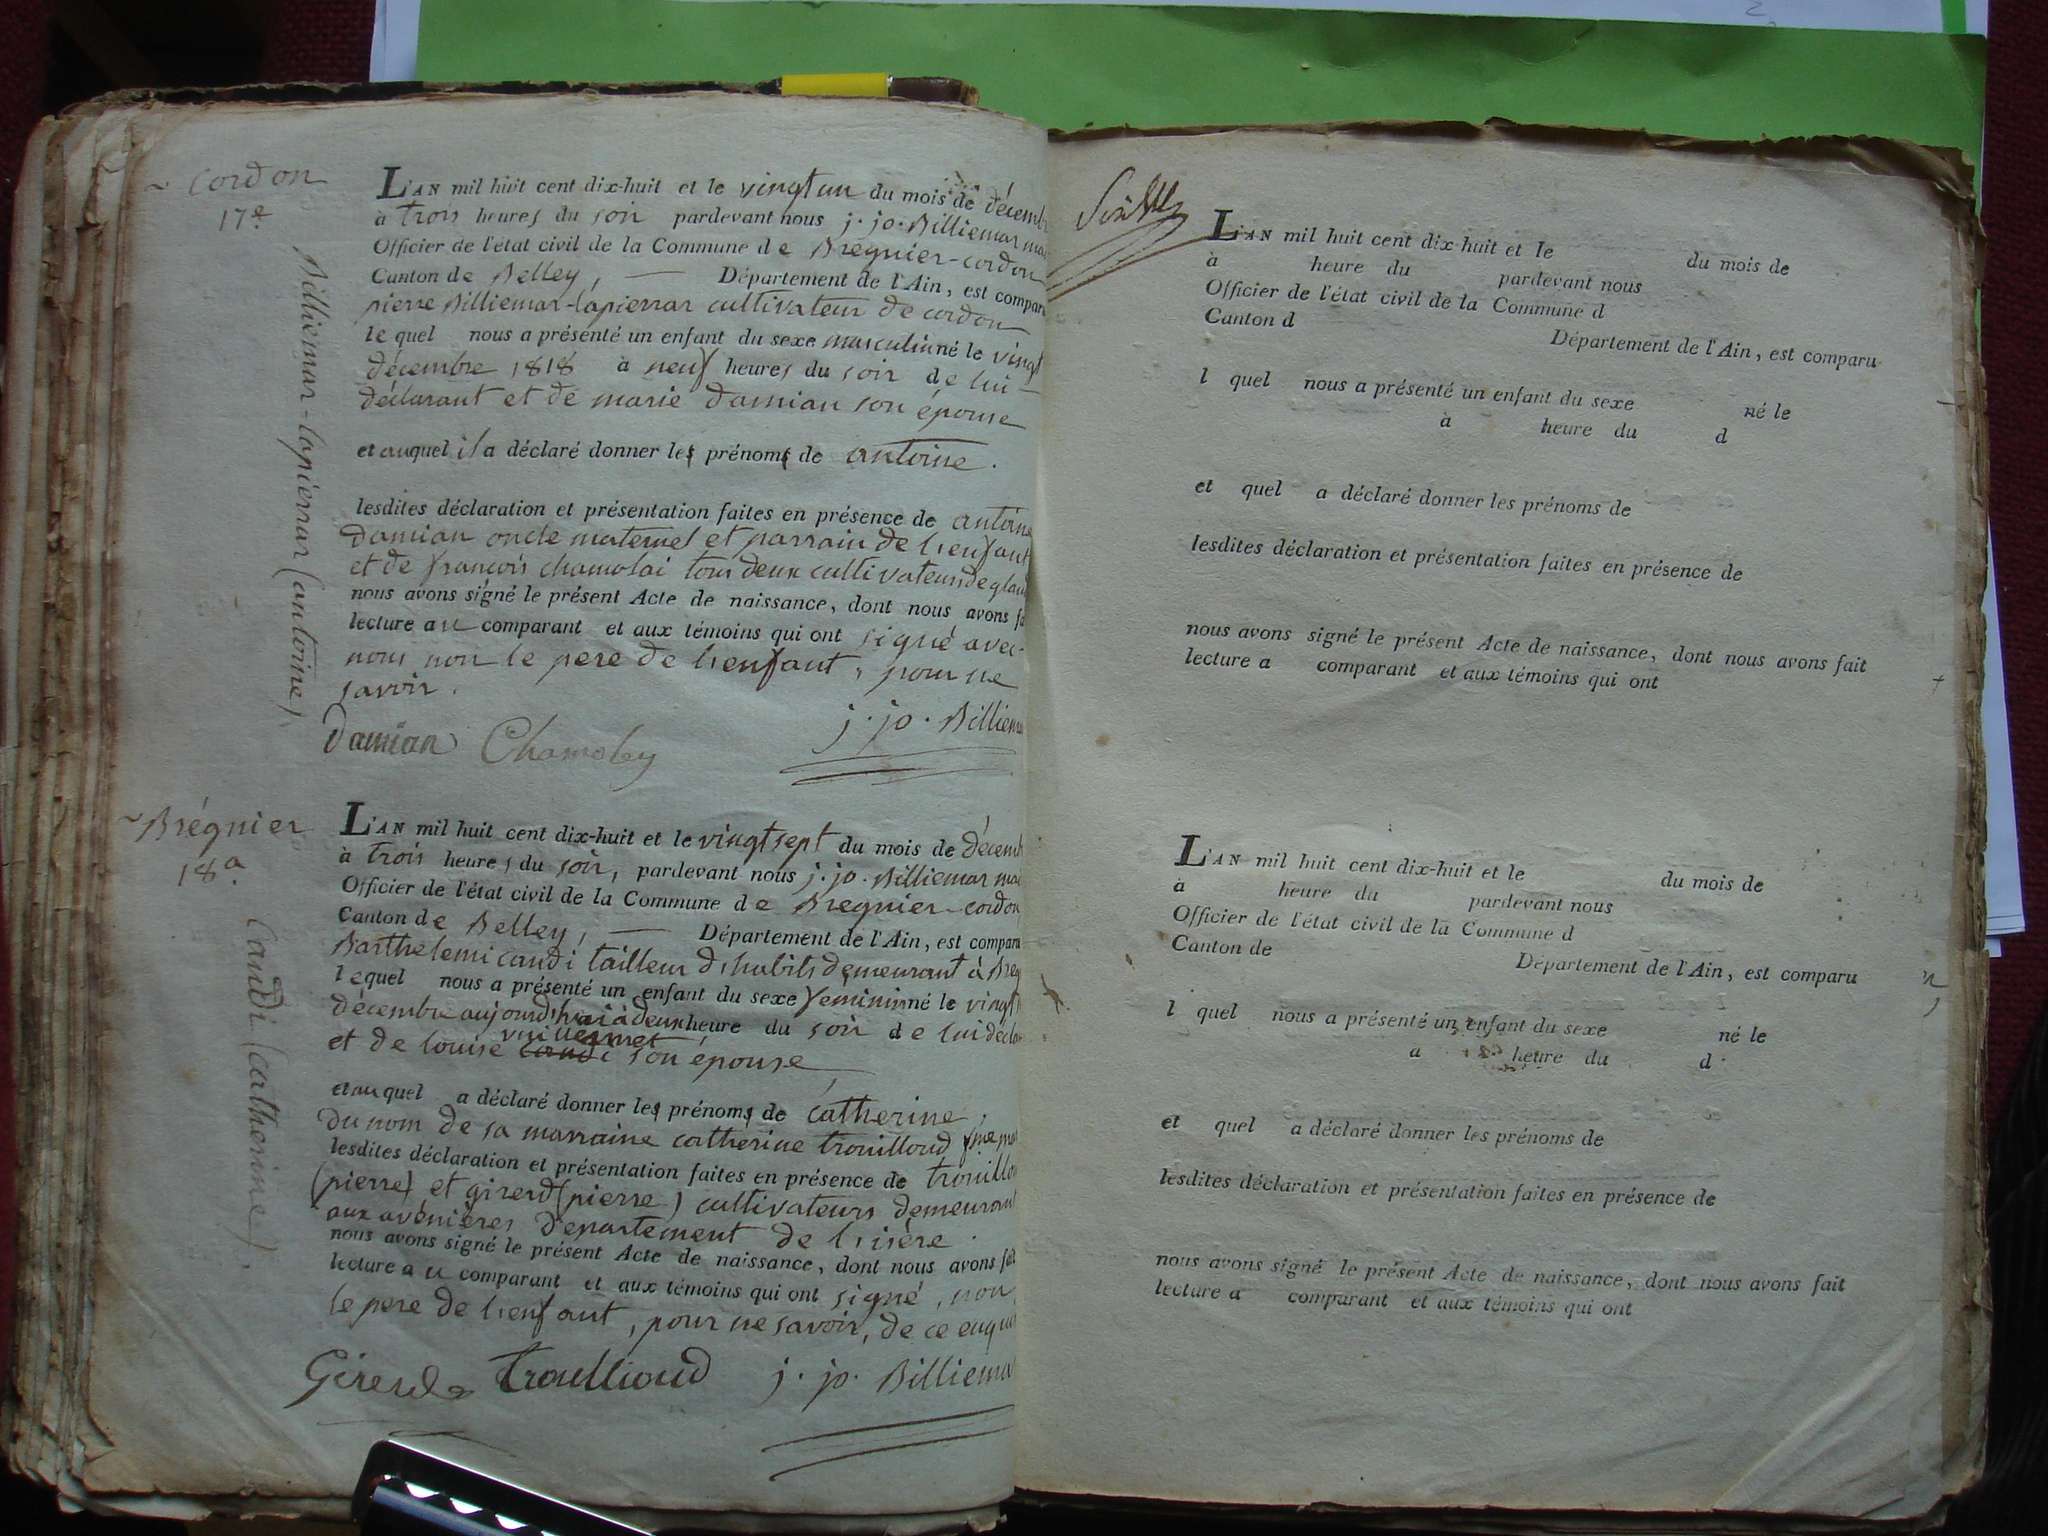 Cordon
17e
Billiemar-lapierrar (antoine).
L'AN mil huit cent dix-huit et le vingt un du mois de décemb
à trois heures du soir pardevant nous j. jo. Billiemar mai
Officier de l'état civil de la Commune de Bregnier-cordon
Canton de Belley, — Département de l'Ain, est comparu
pierre Billiemar-lapierrar cultivateur de cordon
le quel nous a présenté un enfant du sexe masculin né le vingt
décembre 1818 à neuf heures du soir de lui
déclarant et de marie damian son épouse
et auquel il a déclaré donner les prénoms de antoine.
lesdites déclaration et présentation faites en présence de antoine
damian oncle maternel et parrain de l'enfant
et de françois chamolai tous deux cultivateurs de glan
nous avons signé le présent Acte de naissance, dont nous avons fa
lecture au comparant et aux témoins qui ont signé avec
nous non le pere de l'enfant, pour ne
savoir.
damian Chamoley j. jo. Billiema
Brégnier
18a.
Candi (catherine).
L'AN mil huit cent dix-huit et le vingt sept du mois de décemb
à trois heures du soir, pardevant nous j. jo. Billiemar mai
Officier de l'état civil de la Commune de Bregnier-cordon
Canton de Belley, — Département de l'Ain, est comparu
Barthelemi candi tailleur d'habits demeurant à Breg
lequel nous a présenté un enfant du sexe feminin né le vingt
décembre aujourd'hui à deux heure du soir de lui décla
vuillermet
et de louise candi son épouse
et auquel a déclaré donner les prénoms de catherine,
du nom de sa marraine catherine trouilloud
lesdites déclaration et présentation faites en présence de trouillou
(pierre) et girerd (pierre) cultivateurs demeurant
aux avenières département de l'isère.
nous avons signé le présent Acte de naissance, dont nous avons fait
lecture au comparant et aux témoins qui ont signé, non
le pere de l'enfant, pour ne savoir, de ce enqui
Girerd Troullioud j. jo. Billiema
L'AN mil huit cent dix-huit et le du mois de
à heure du pardevant nous
Officier de l'état civil de la Commune d
Canton d
Département de l'Ain, est comparu
l quel nous a présenté un enfant du sexe né le
à heure du d
et quel a déclaré donner les prénoms de
lesdites déclaration et présentation faites en présence de
nous avons signé le présent Acte de naissance, dont nous avons fait
lecture a comparant et aux témoins qui ont
L'AN mil huit cent dix-huit et le du mois de
à heure du pardevant nous
Officier de l'état civil de la Commune d
Canton de
Département de l'Ain, est comparu
l quel nous a présenté un enfant du sexe né le
a heure du d
et quel a déclaré donner les prénoms de
lesdites déclaration et présentation faites en présence de
nous avons signé le présent Acte de naissance, dont nous avons fait
lecture a comparant et aux témoins qui ont